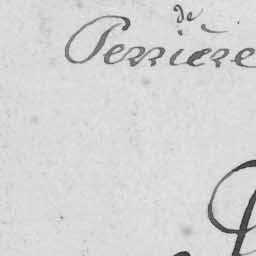 de
Perrière